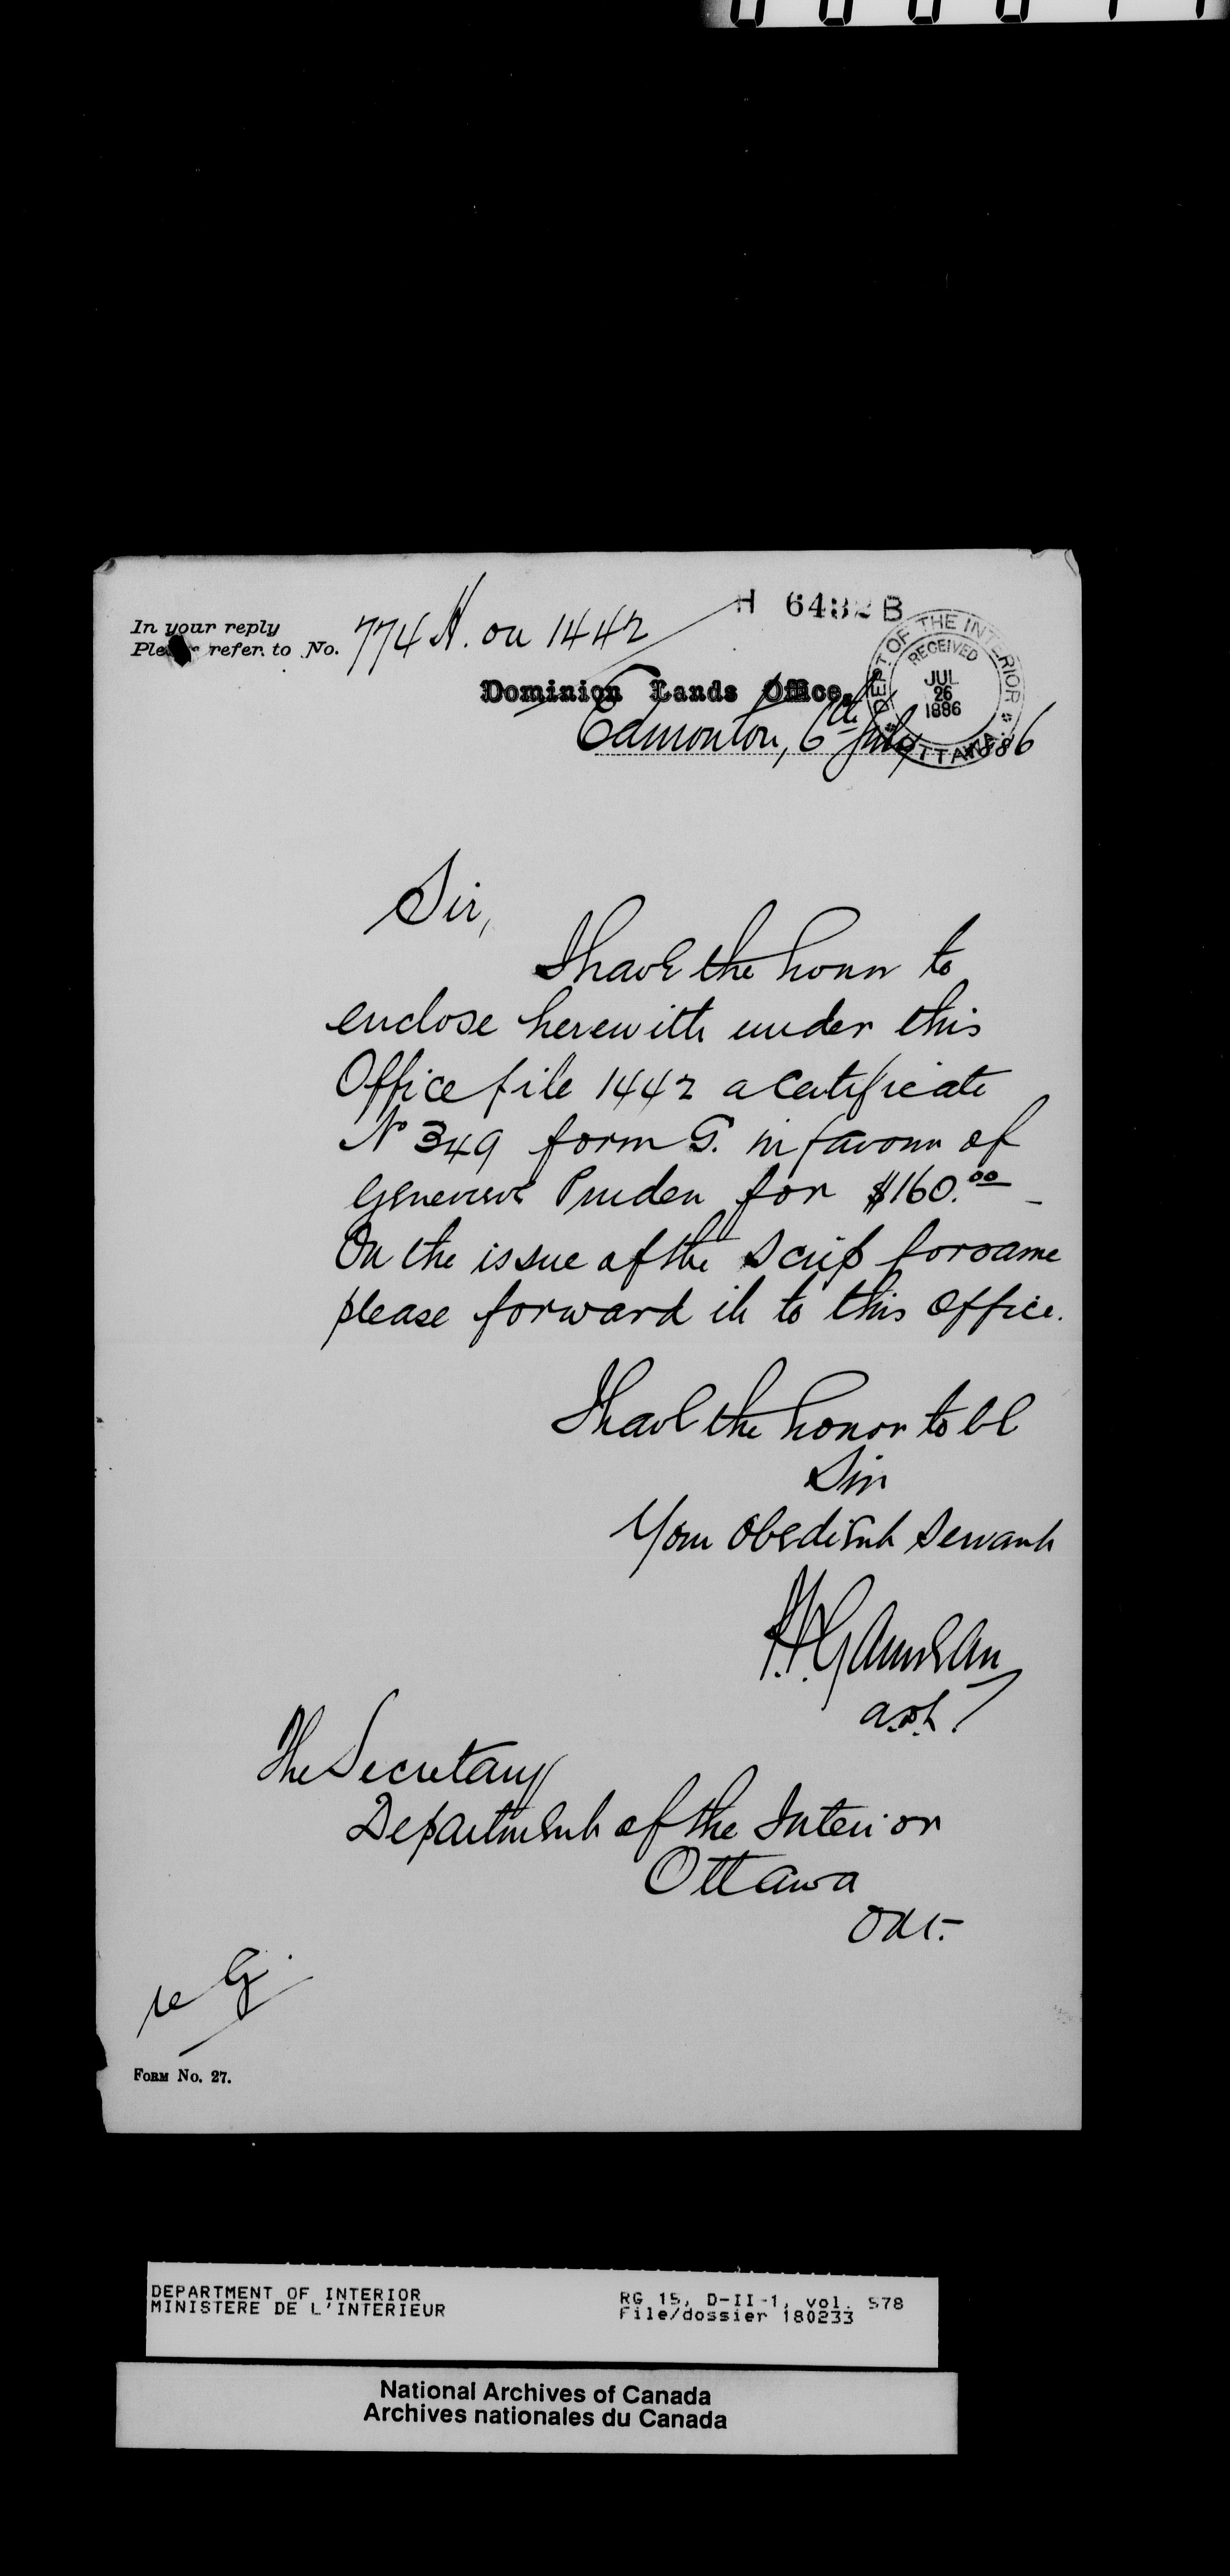 H 6432 B
In your reply
Please refer to No. 774 H. on 1442
DEPT. OF THE INTERIOR
RECEIVED
JUL
26
1886
OTTAWA
Dominion Lands Office,
Edmonton, 6th July 1886
Sir,
I have the honor to
enclose herewith under this
Office file 1442 a Certificate
No 349 form G. in favour of
Genevieve Pruden for $160.00 –
On the issue of the Scrip for same
please forward it to this Office.
I have the honor to be
Sir
Your Obedient Servant
agt
The Secretary
Department of the Interior
Ottawa
Ont.
FORM No. 27.
DEPARTMENT OF INTERIOR
MINISTERE DE L'INTERIEUR
RG 15, D-II-1, vol. 578
File/dossier 180233
National Archives of Canada
Archives nationales du Canada